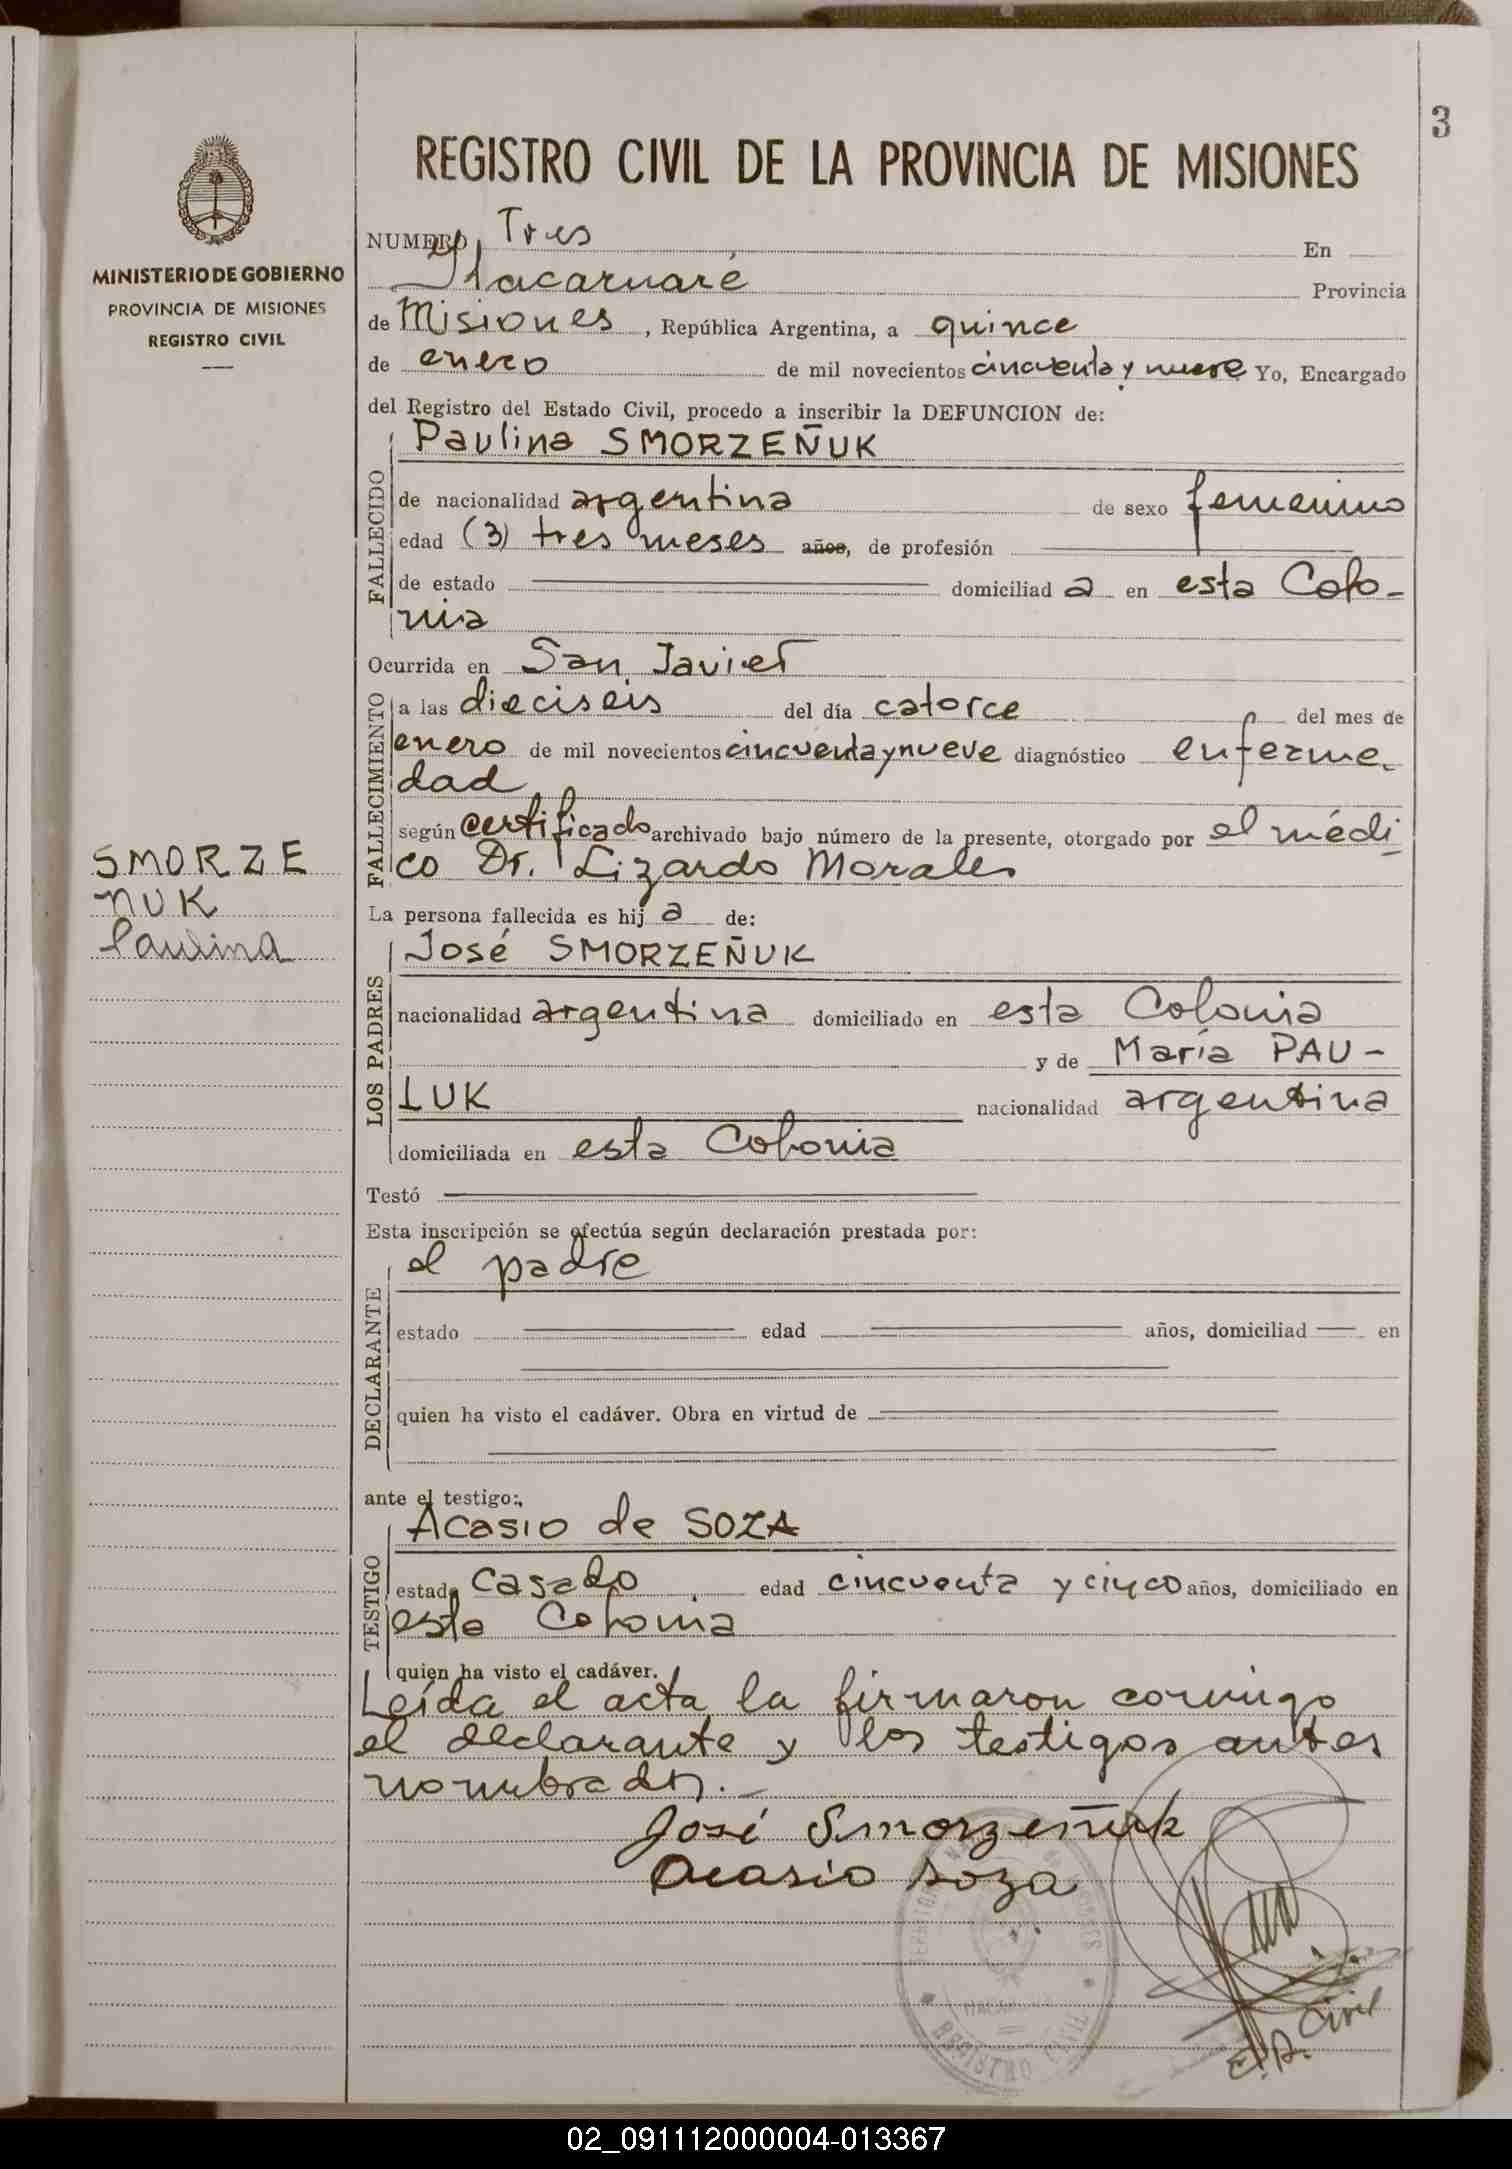 3
REGISTRO CIVIL DE LA PROVINCIA DE MISIONES
MINISTERIO DE GOBIERNO
PROVINCIA DE MISIONES
REGISTRO CIVIL
NUMERO Tres En
Itacaruaré Provincia
de Misiones, República Argentina, a quince
de enero de mil novecientos cincuenta y nueve Yo, Encargado
del Registro del Estado Civil, procedo a inscribir la DEFUNCION de:
FALLECIDO
Paulina SMORZEÑUK
de nacionalidad argentina de sexo femenino
edad (3) tres meses años, de profesión
de estado domiciliad a en esta Colo-
nia
Ocurrida en San Javier
FALLECIMIENTO
a las dieciseis del día catorce del mes de
enero de mil novecientos cincuenta y nueve diagnóstico enferme-
dad
según certificado archivado bajo número de la presente, otorgado por el médi
co Dr. Lizardo Morales
SMORZE
NUK
Paulina
La persona fallecida es hij a de:
LOS PADRES
José SMORZEÑUK
nacionalidad argentina domiciliado en esta Colonia
y de María PAU-
LUK nacionalidad argentina
domiciliada en esta Colonia
Testó
Esta inscripción se efectúa según declaración prestada por:
DECLARANTE
el padre
estado edad años, domiciliad en
quien ha visto el cadáver. Obra en virtud de
ante el testigo:
TESTIGO
Acasio de SOZA
estado Casado edad cincuenta y cinco años, domiciliado en
esta Colonia
quien ha visto el cadáver.
Leída el acta la firmaron conmigo
el declarante y los testigos antes
nombrados.-
José Smorzeñuk
Acasio soza
REGISTRO CIVIL
E. R. Civil
02_091112000004-013367